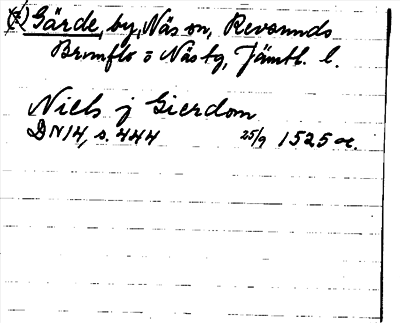 Gärde, by, Näs sn, Revsunds
Brunflo o Näs tg, Jämtl. l.
Niels j Gierdom
DN 14, s. 444 25/9 1525 or.